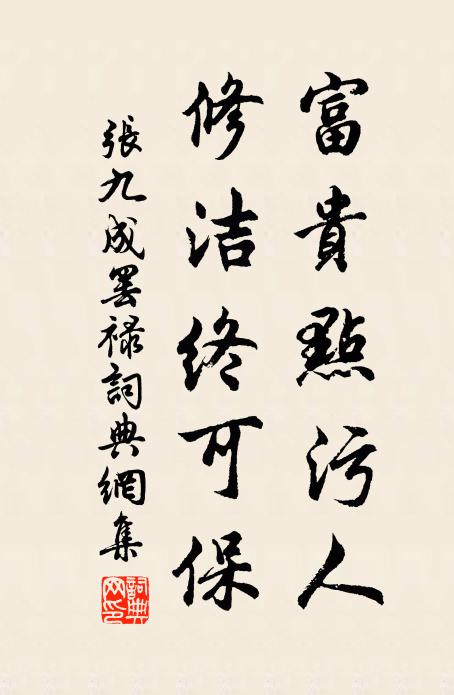 富貴點污人
修洁终可保
張九成罢祿詞典網集
詞典网印